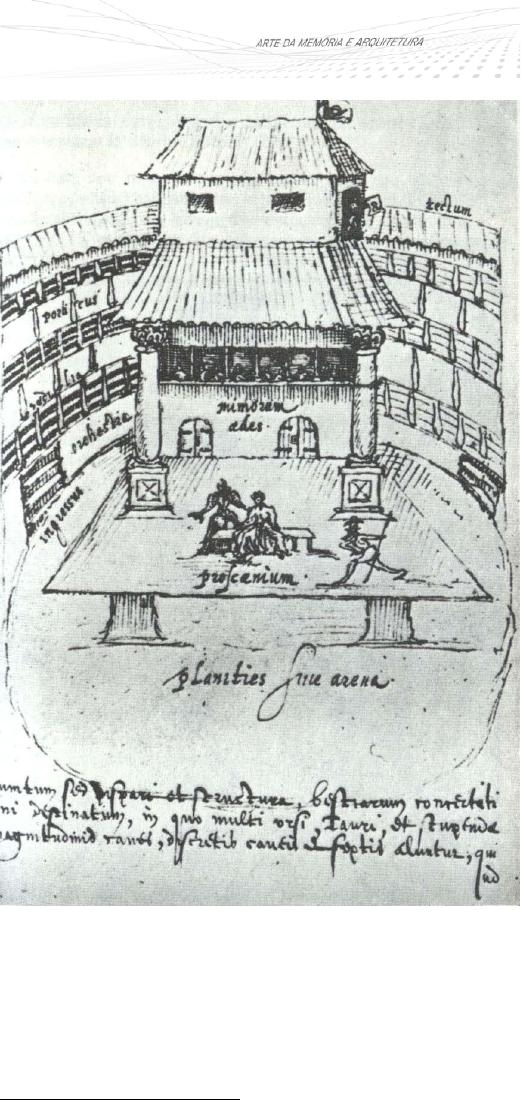 ARTE DA MEMÓRIA E ARQUITETURA
tectum
porticus
sedilia
orchestra
ingressus
mimorum
ædes.
proscænium.
planities sive arena.
sed dispari et structura, bestiarum concertati
ni destinatum, in quo multi ursi, Tauri, et stupendæ
magnitudinis canes, discretis caveis & septis aluntur, qui
ad